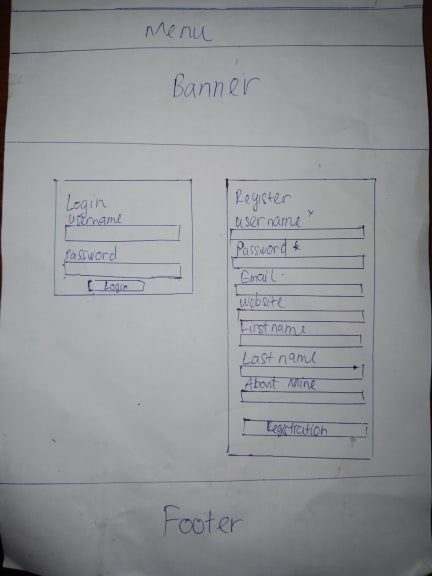 Menu
Banner
Login
username
Password
Login
Register
username *
Password *
Email
Website
First name
Last name
About Mine
Registration
Footer